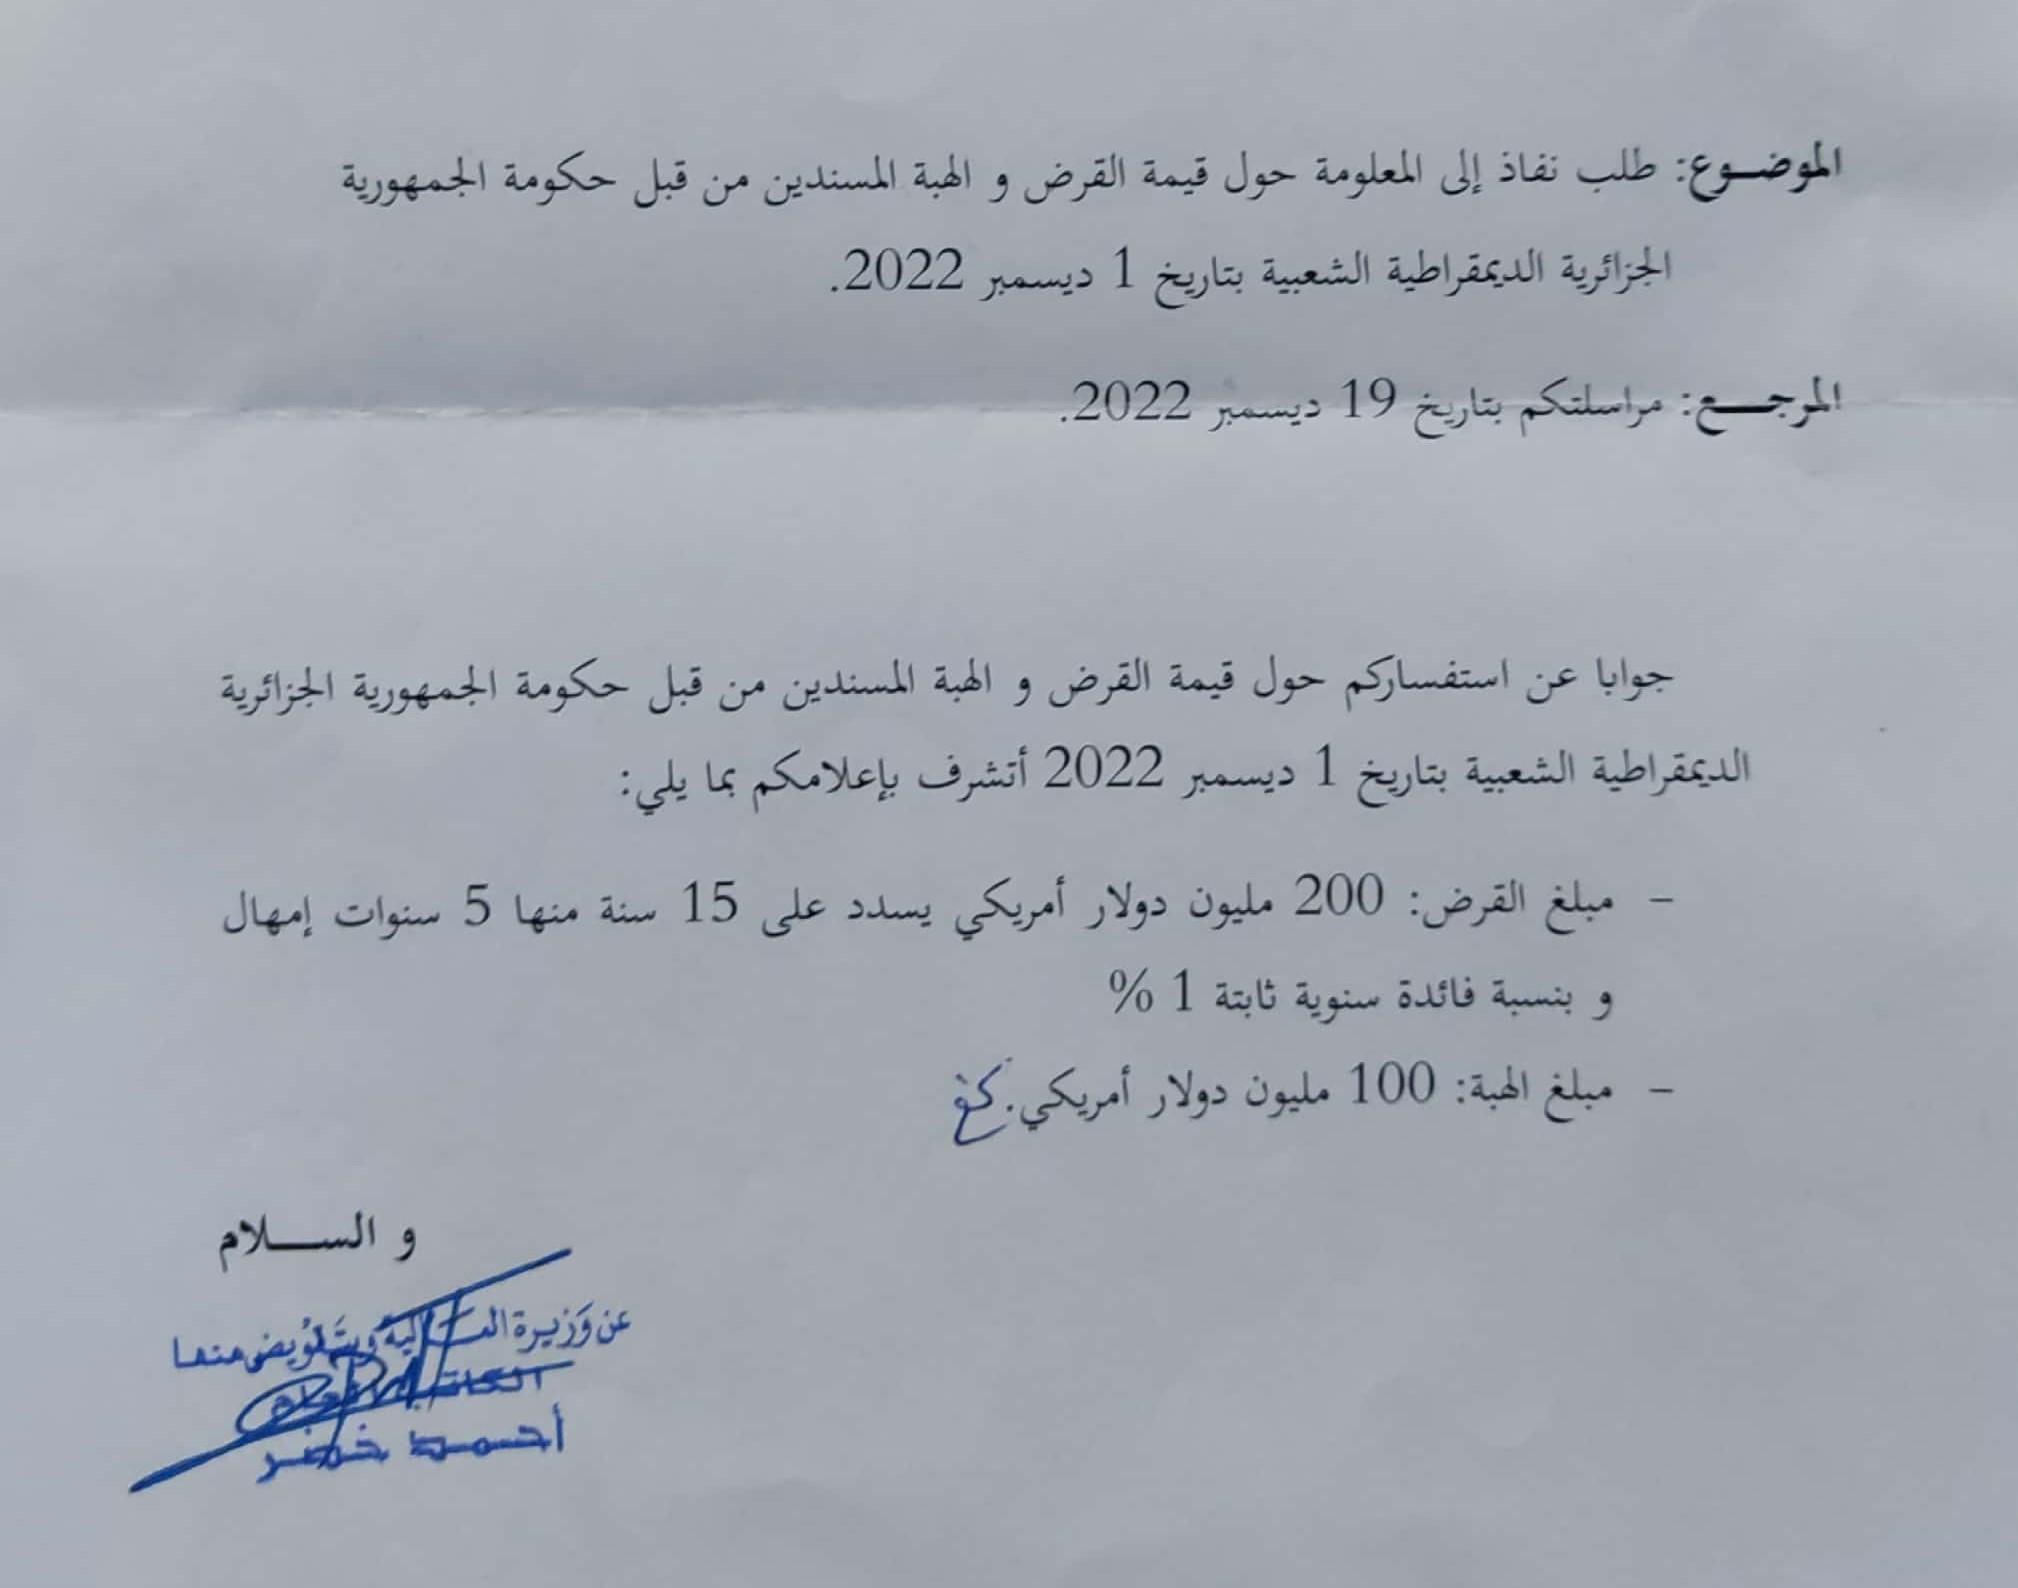 الموضـوع: طلب نفاذ إلى المعلومة حول قيمة القرض و الهبة المسندين من قبل حكومة الجمهورية
الجزائرية الديمقراطية الشعبية بتاريخ 1 ديسمبر 2022.
المرجـــع: مراسلتكم بتاريخ 19 ديسمبر 2022.
جوابا عن استفساركم حول قيمة القرض و الهبة المسندين من قبل حكومة الجمهورية الجزائرية
الديمقراطية الشعبية بتاريخ 1 ديسمبر 2022 أتشرف بإعلامكم بما يلي:
– مبلغ القرض: 200 مليون دولار أمريكي يسدد على 15 سنة منها 5 سنوات إمهال
و بنسبة فائدة سنوية ثابتة 1 %
– مبلغ الهبة: 100 مليون دولار أمريكي.
و الســـلام
عن وَزيرة الماليَة وبتَفوُيض منها
أحمد خضر